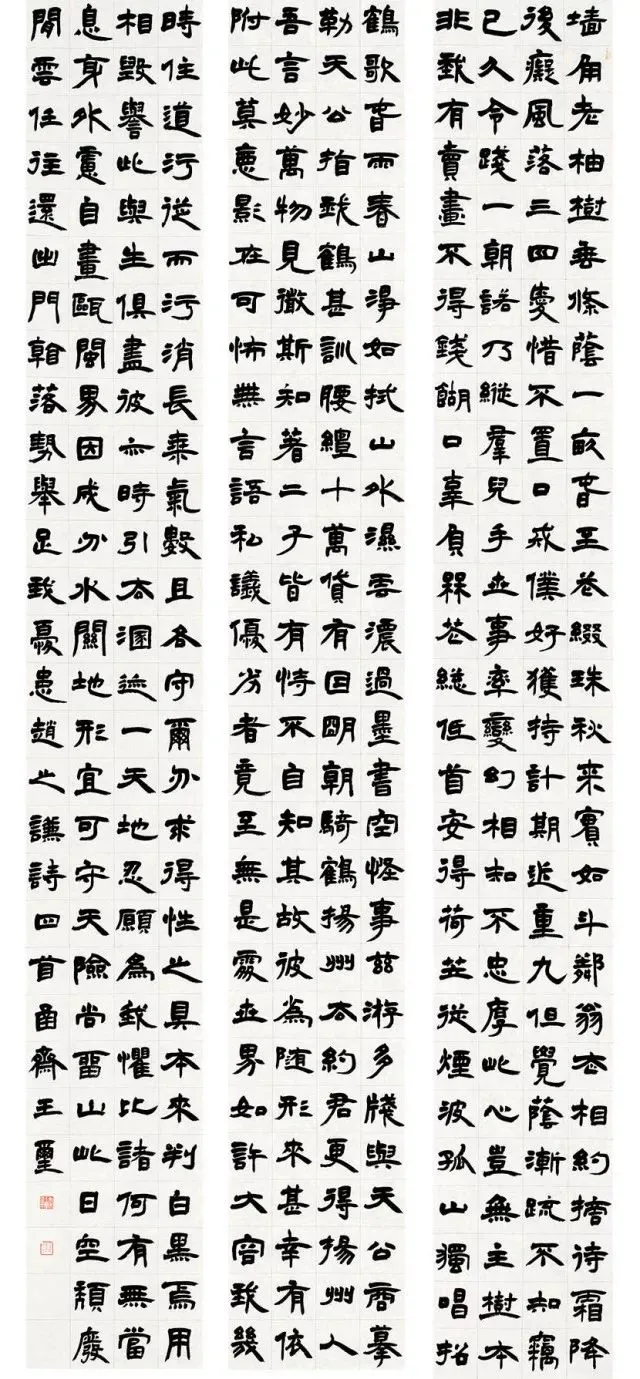 墙角老柚樹垂條蔭一畝春至花綴珠秋来實如斗鄰翁去相約摘待霜降
後癡風落三四嘆惜不置口戒僕好獲持計期近重九但覺蔭漸疏不知竊
已久令踐一朝諾乃縱羣兒手世事率變幻相知不忠厚此心豈無主樹本
非我有賣畫不得錢餬口辜負罙花總低首安得荷芰從煙波孤山獨唱招
鶴歌春雨春山淨如拭山外濕雲濃過墨書空怪事兹游多牋與天公商摹
勒天公拍我鶴甚訓腰纏十萬貸有因明朝騎鶴揚州去約君更得揚州人
吾言妙萬物見微斯知著二子皆有恃不自知其故彼為随形来甚幸有依
附此莫惠影在可怖無言語私議優劣者竟至無是處世界如許大容我幾
時住道行從而行消長乘氣數且各守爾分求得性之真本來判白黑焉用
相毀譽此與生俱盡彼亦時引去溷迹一天地忍願為我懼比諸何有無當
息身外慮自畫甌閩界因成分水關地形宜可守天險尚留山此日空頹廢
閒雲任往還出門落勢舉足我憂患趙之謙詩四首齋王璽